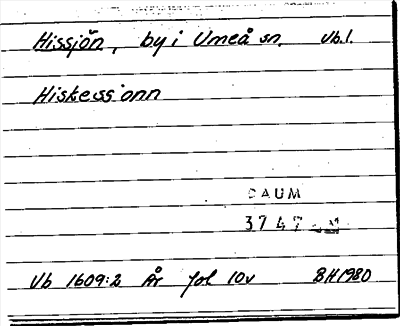 Hissjön, by i Umeå sn. Vb.l.
Hiskessionn
DAUM
3747
Vb 1609:2 År fol 10v BH1980